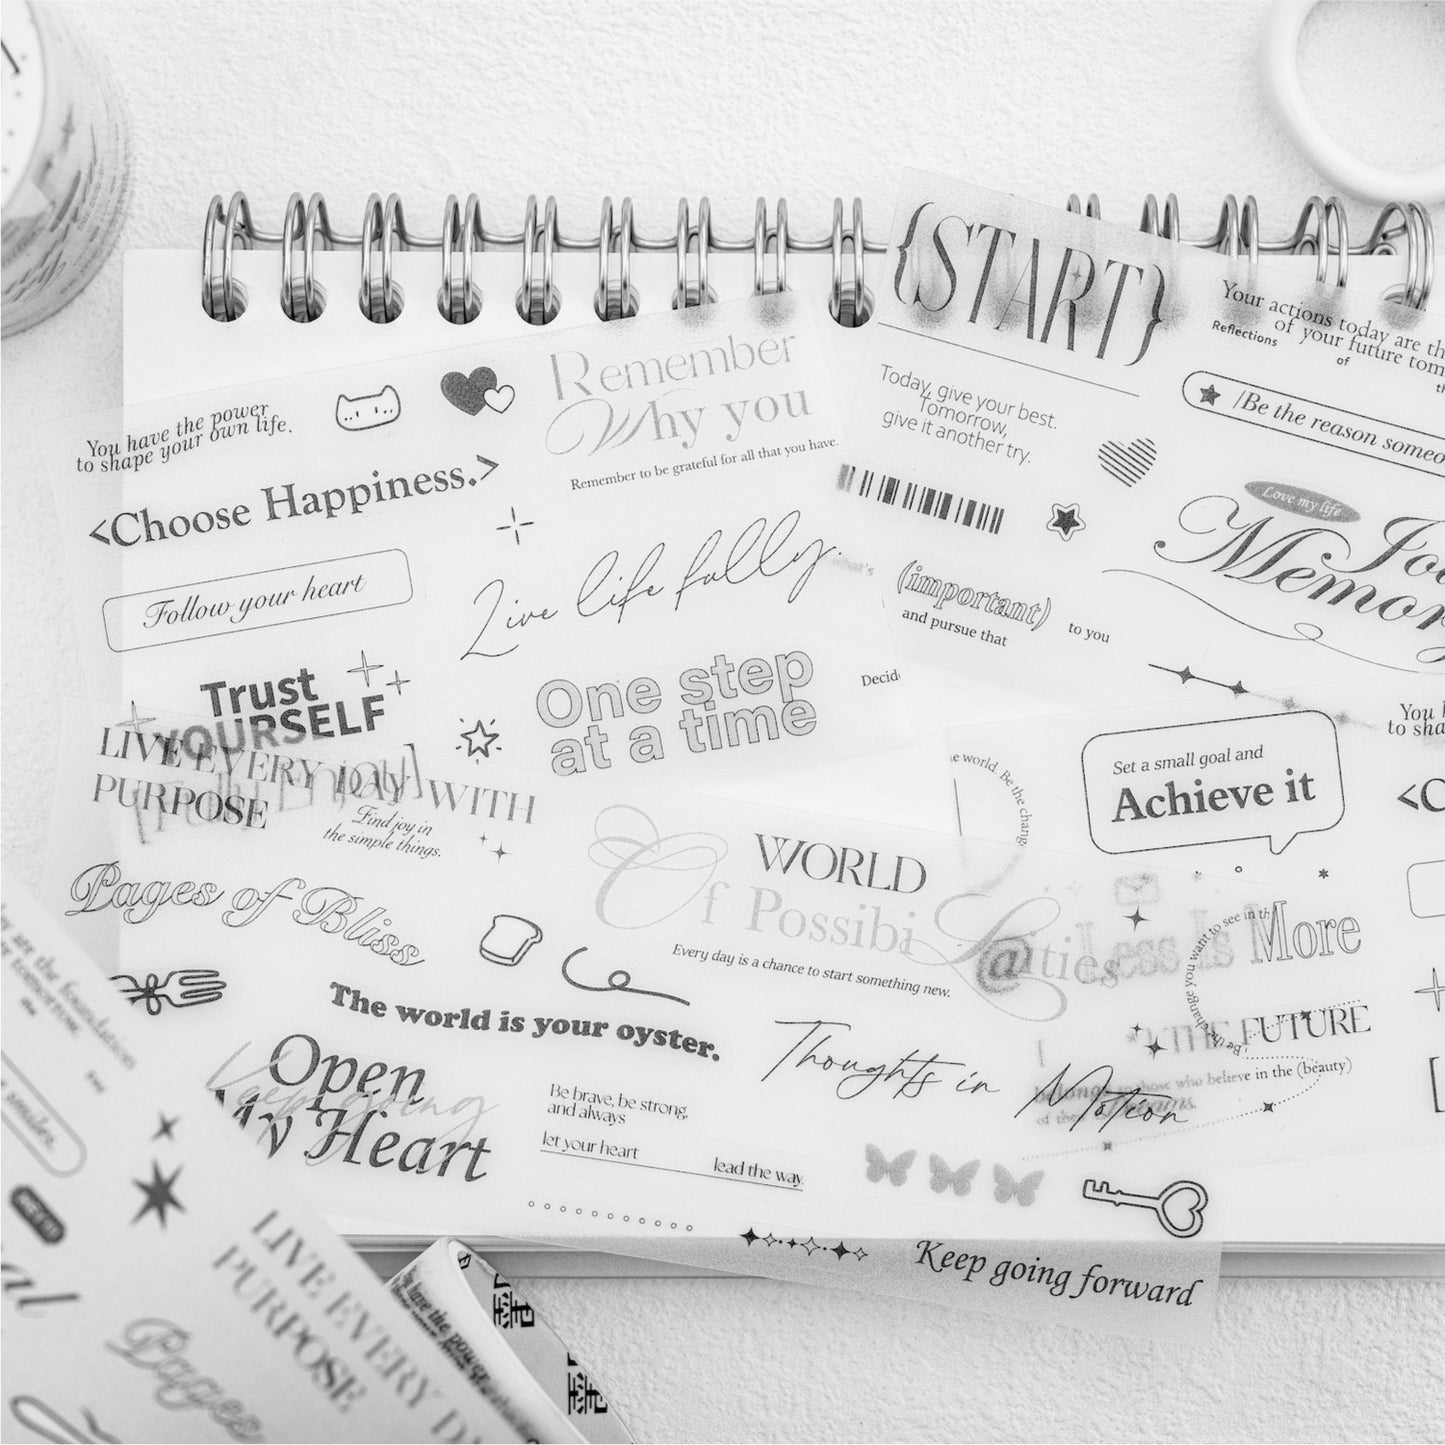 {START}
Your actions today are
of your future
Reflections
of
/Be the reason
Today, give your best.
Tomorrow,
give it another try.
Love my life
(important)
and pursue that
to you
Remember
Why you
Remember to be grateful for all that you have.
You have the power
to shape your own life.
<Choose Happiness.>
Follow your heart
Live life fully.
Trust
YOURSELF
One step
at a time
LIVE EVERY DAY WITH
PURPOSE
Find joy in
the simple things.
Set a small goal and
Achieve it
Pages of Bliss
WORLD
Of Possibilities
Every day is a chance to start something new.
@
Less Is More
Be the change you want to see in th
THE FUTURE
belongs to those who believe in the (beauty)
The world is your oyster.
Open
My Heart
Keep going
Be brave, be strong,
and always
let your heart
lead the way.
Thoughts in Motion
Keep going forward
LIVE EVERY
PURPOSE
Pages